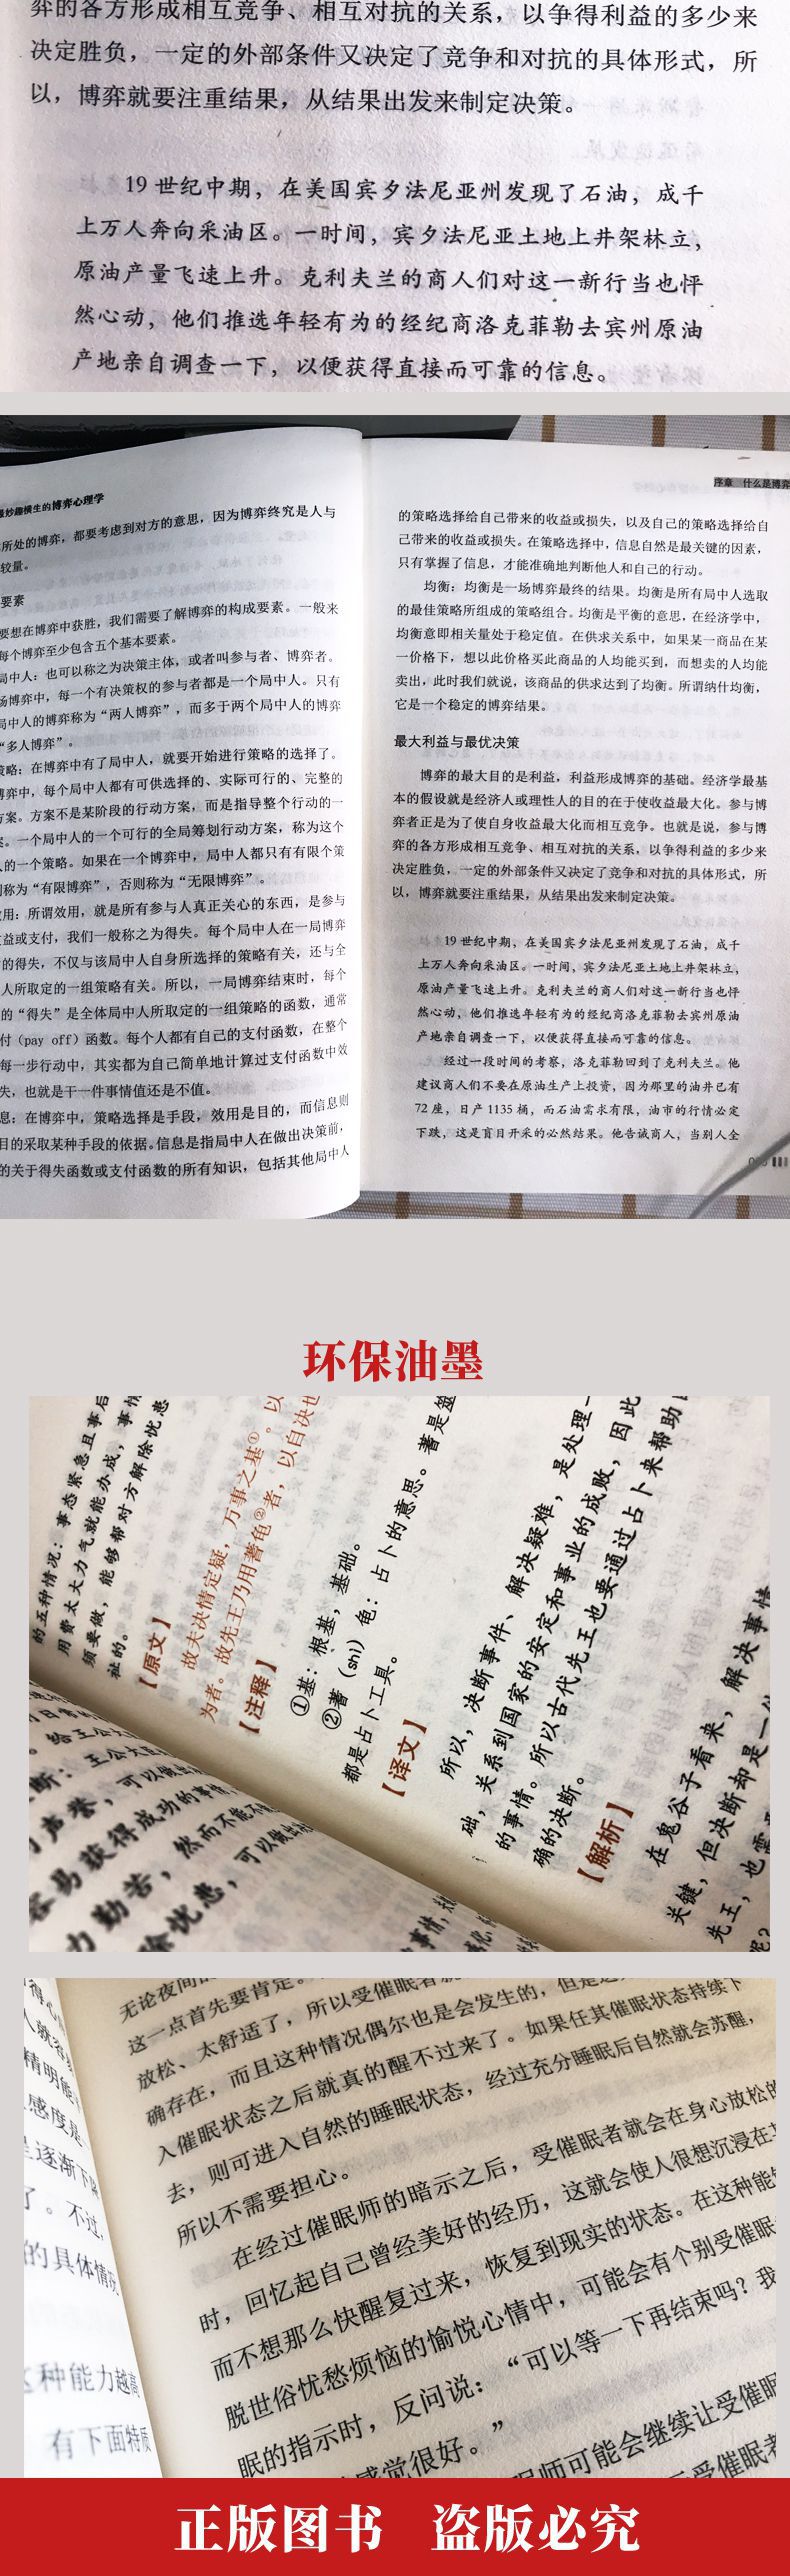 弈的各方形成相互竞争、相互对抗的关系，以争得利益的多少来
决定胜负，一定的外部条件又决定了竞争和对抗的具体形式，所
以，博弈就要注重结果，从结果出发来制定决策。
19 世纪中期，在美国宾夕法尼亚州发现了石油，成千
上万人奔向采油区。一时间，宾夕法尼亚土地上井架林立，
原油产量飞速上升。克利夫兰的商人们对这一新行当也怦
然心动，他们推选年轻有为的经纪商洛克菲勒去宾州原油
产地亲自调查一下，以便获得直接而可靠的信息。
最妙趣横生的博弈心理学
所处的博弈，都要考虑到对方的意思，因为博弈终究是人与
较量。
要素
要想在博弈中获胜，我们需要了解博弈的构成要素。一般来
每个博弈至少包含五个基本要素。
局中人：也可以称之为决策主体，或者叫参与者、博弈者。
场博弈中，每一个有决策权的参与者都是一个局中人。只有
局中人的博弈称为“两人博弈”，而多于两个局中人的博弈
“多人博弈”。
策略：在博弈中有了局中人，就要开始进行策略的选择了。
博弈中，每个局中人都有可供选择的、实际可行的、完整的
方案。方案不是某阶段的行动方案，而是指导整个行动的一
案。一个局中人的一个可行的全局筹划行动方案，称为这个
人的一个策略。如果在一个博弈中，局中人都只有有限个策
则称为“有限博弈”，否则称为“无限博弈”。
效用：所谓效用，就是所有参与人真正关心的东西，是参与
收益或支付，我们一般称之为得失。每个局中人在一局博弈
的得失，不仅与该局中人自身所选择的策略有关，还与全
人所取定的一组策略有关。所以，一局博弈结束时，每个
的“得失”是全体局中人所取定的一组策略的函数，通常
付（pay off）函数。每个人都有自己的支付函数，在整个
每一步行动中，其实都为自己简单地计算过支付函数中效
失，也就是干一件事情值还是不值。
息：在博弈中，策略选择是手段，效用是目的，而信息则
目的采取某种手段的依据。信息是指局中人在做出决策前，
的关于得失函数或支付函数的所有知识，包括其他局中人
序章 什么是博弈
的策略选择给自己带来的收益或损失，以及自己的策略选择给自
己带来的收益或损失。在策略选择中，信息自然是最关键的因素，
只有掌握了信息，才能准确地判断他人和自己的行动。
均衡：均衡是一场博弈最终的结果。均衡是所有局中人选取
的最佳策略所组成的策略组合。均衡是平衡的意思，在经济学中，
均衡意即相关量处于稳定值。在供求关系中，如果某一商品在某
一价格下，想以此价格买此商品的人均能买到，而想卖的人均能
卖出，此时我们就说，该商品的供求达到了均衡。所谓纳什均衡，
它是一个稳定的博弈结果。
最大利益与最优决策
博弈的最大目的是利益，利益形成博弈的基础。经济学最基
本的假设就是经济人或理性人的目的在于使收益最大化。参与博
弈者正是为了使自身收益最大化而相互竞争。也就是说，参与博
弈的各方形成相互竞争、相互对抗的关系，以争得利益的多少来
决定胜负，一定的外部条件又决定了竞争和对抗的具体形式，所
以，博弈就要注重结果，从结果出发来制定决策。
19 世纪中期，在美国宾夕法尼亚州发现了石油，成千
上万人奔向采油区。一时间，宾夕法尼亚土地上井架林立，
原油产量飞速上升。克利夫兰的商人们对这一新行当也怦
然心动，他们推选年轻有为的经纪商洛克菲勒去宾州原油
产地亲自调查一下，以便获得直接而可靠的信息。
经过一段时间的考察，洛克菲勒回到了克利夫兰。他
建议商人们不要在原油生产上投资，因为那里的油井已有
72 座，日产 1135 桶，而石油需求有限，油市的行情必定
下跌，这是盲目开采的必然结果。他告诫商人，当别人全
环保油墨
的五种情况：事态紧急且事后
用费太大力气就能办成，事情
须要做，能够帮对方解除忧患
祉的。
【原文】
故夫决情定疑，万事之基①。以
为者。故先王乃用蓍龟②者，以自决也
【注释】
①基：根基，基础。
②蓍（shī）龟：占卜的意思。蓍是筮
都是占卜工具。
【译文】
所以，决断事件、解决疑难，是处理一
础，关系到国家的安定和事业的成败，因此
的事情。所以古代先王也要通过占卜来帮助
确的决断。
【解析】
在鬼谷子看来，解决事情
关键，但决断却是一
先王，也需
断：王公大臣
声誉，可以做出
容易获得成功的事情，
力勤苦，然而不能不
除忧患，可以做出
无论夜间
这一点首先要肯定。
放松、太舒适了，所以受催眠者就
确存在，而且这种情况偶尔也是会发生的，但是
入催眠状态之后就真的醒不过来了。如果任其催眠状态持续下
去，则可进入自然的睡眠状态，经过充分睡眠后自然就会苏醒，
所以不需要担心。
在经过催眠师的暗示之后，受催眠者就会在身心放松的
时，回忆起自己曾经美好的经历，这就会使人很想沉浸在
而不想那么快醒复过来，恢复到现实的状态。在这种能
脱世俗忧愁烦恼的愉悦心情中，可能会有个别受催眠
眠的指示时，反问说：“可以等一下再结束吗？我
感觉很好。”
眠师可能会继续让受催眠
受催眠者
精明能
感度是
逐渐下降
了。不过，
的具体情况
这种能力越高
有下面特质
正版图书 盗版必究